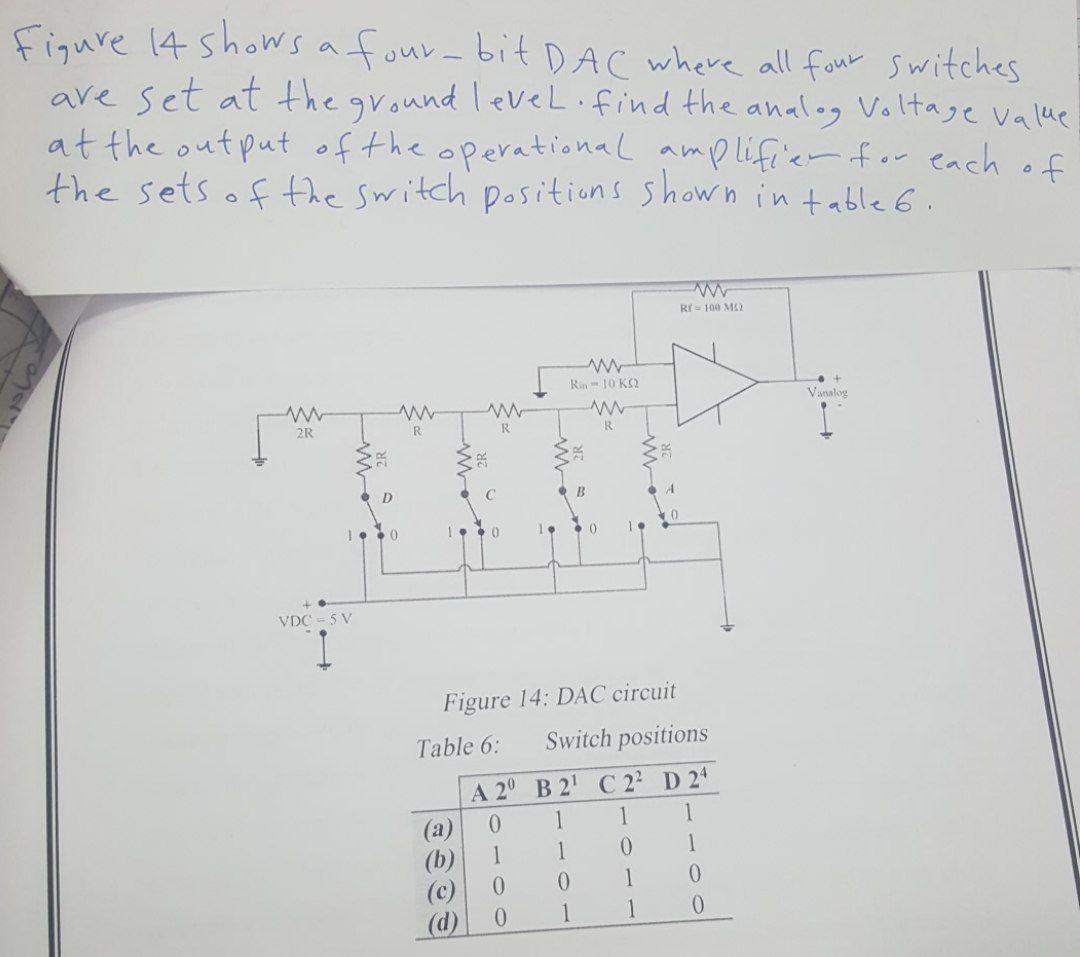 Figure 14 shows a four-bit DAC where all four switches
are set at the ground level. find the analog Voltage value
at the output of the operational amplifier for each of
the sets of the switch positions shown in table 6.
Rf = 100 MΩ
Rin = 10 KΩ
Vanalog
+
-
2R
R
R
R
2R
2R
2R
2R
D
C
B
A
1 0
1 0
1 0
1 0
+
VDC = 5 V
-
Figure 14: DAC circuit
Table 6: Switch positions
A 2⁰ B 2¹ C 2² D 2⁴
(a) 0 1 1 1
(b) 1 1 0 1
(c) 0 0 1 0
(d) 0 1 1 0